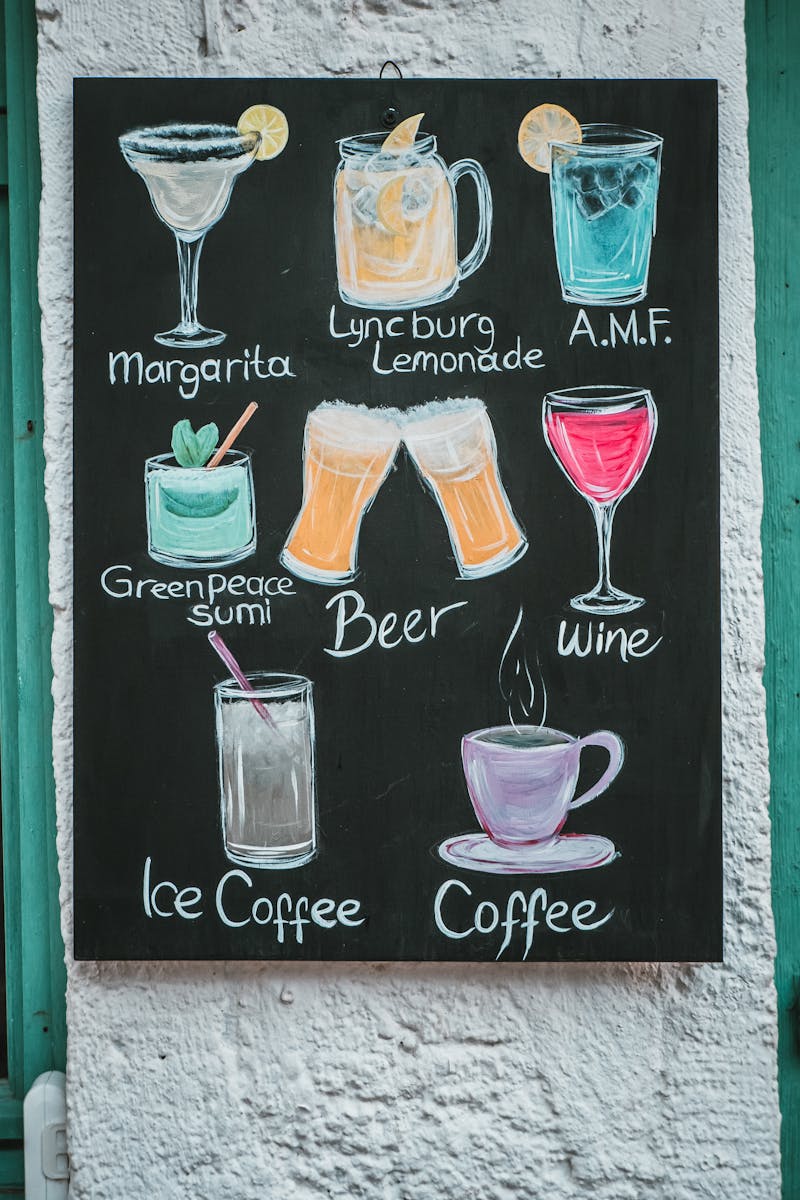 Margarita
Lyncburg
Lemonade
A.M.F.
Greenpeace
sumi
Beer
Wine
Ice Coffee
Coffee